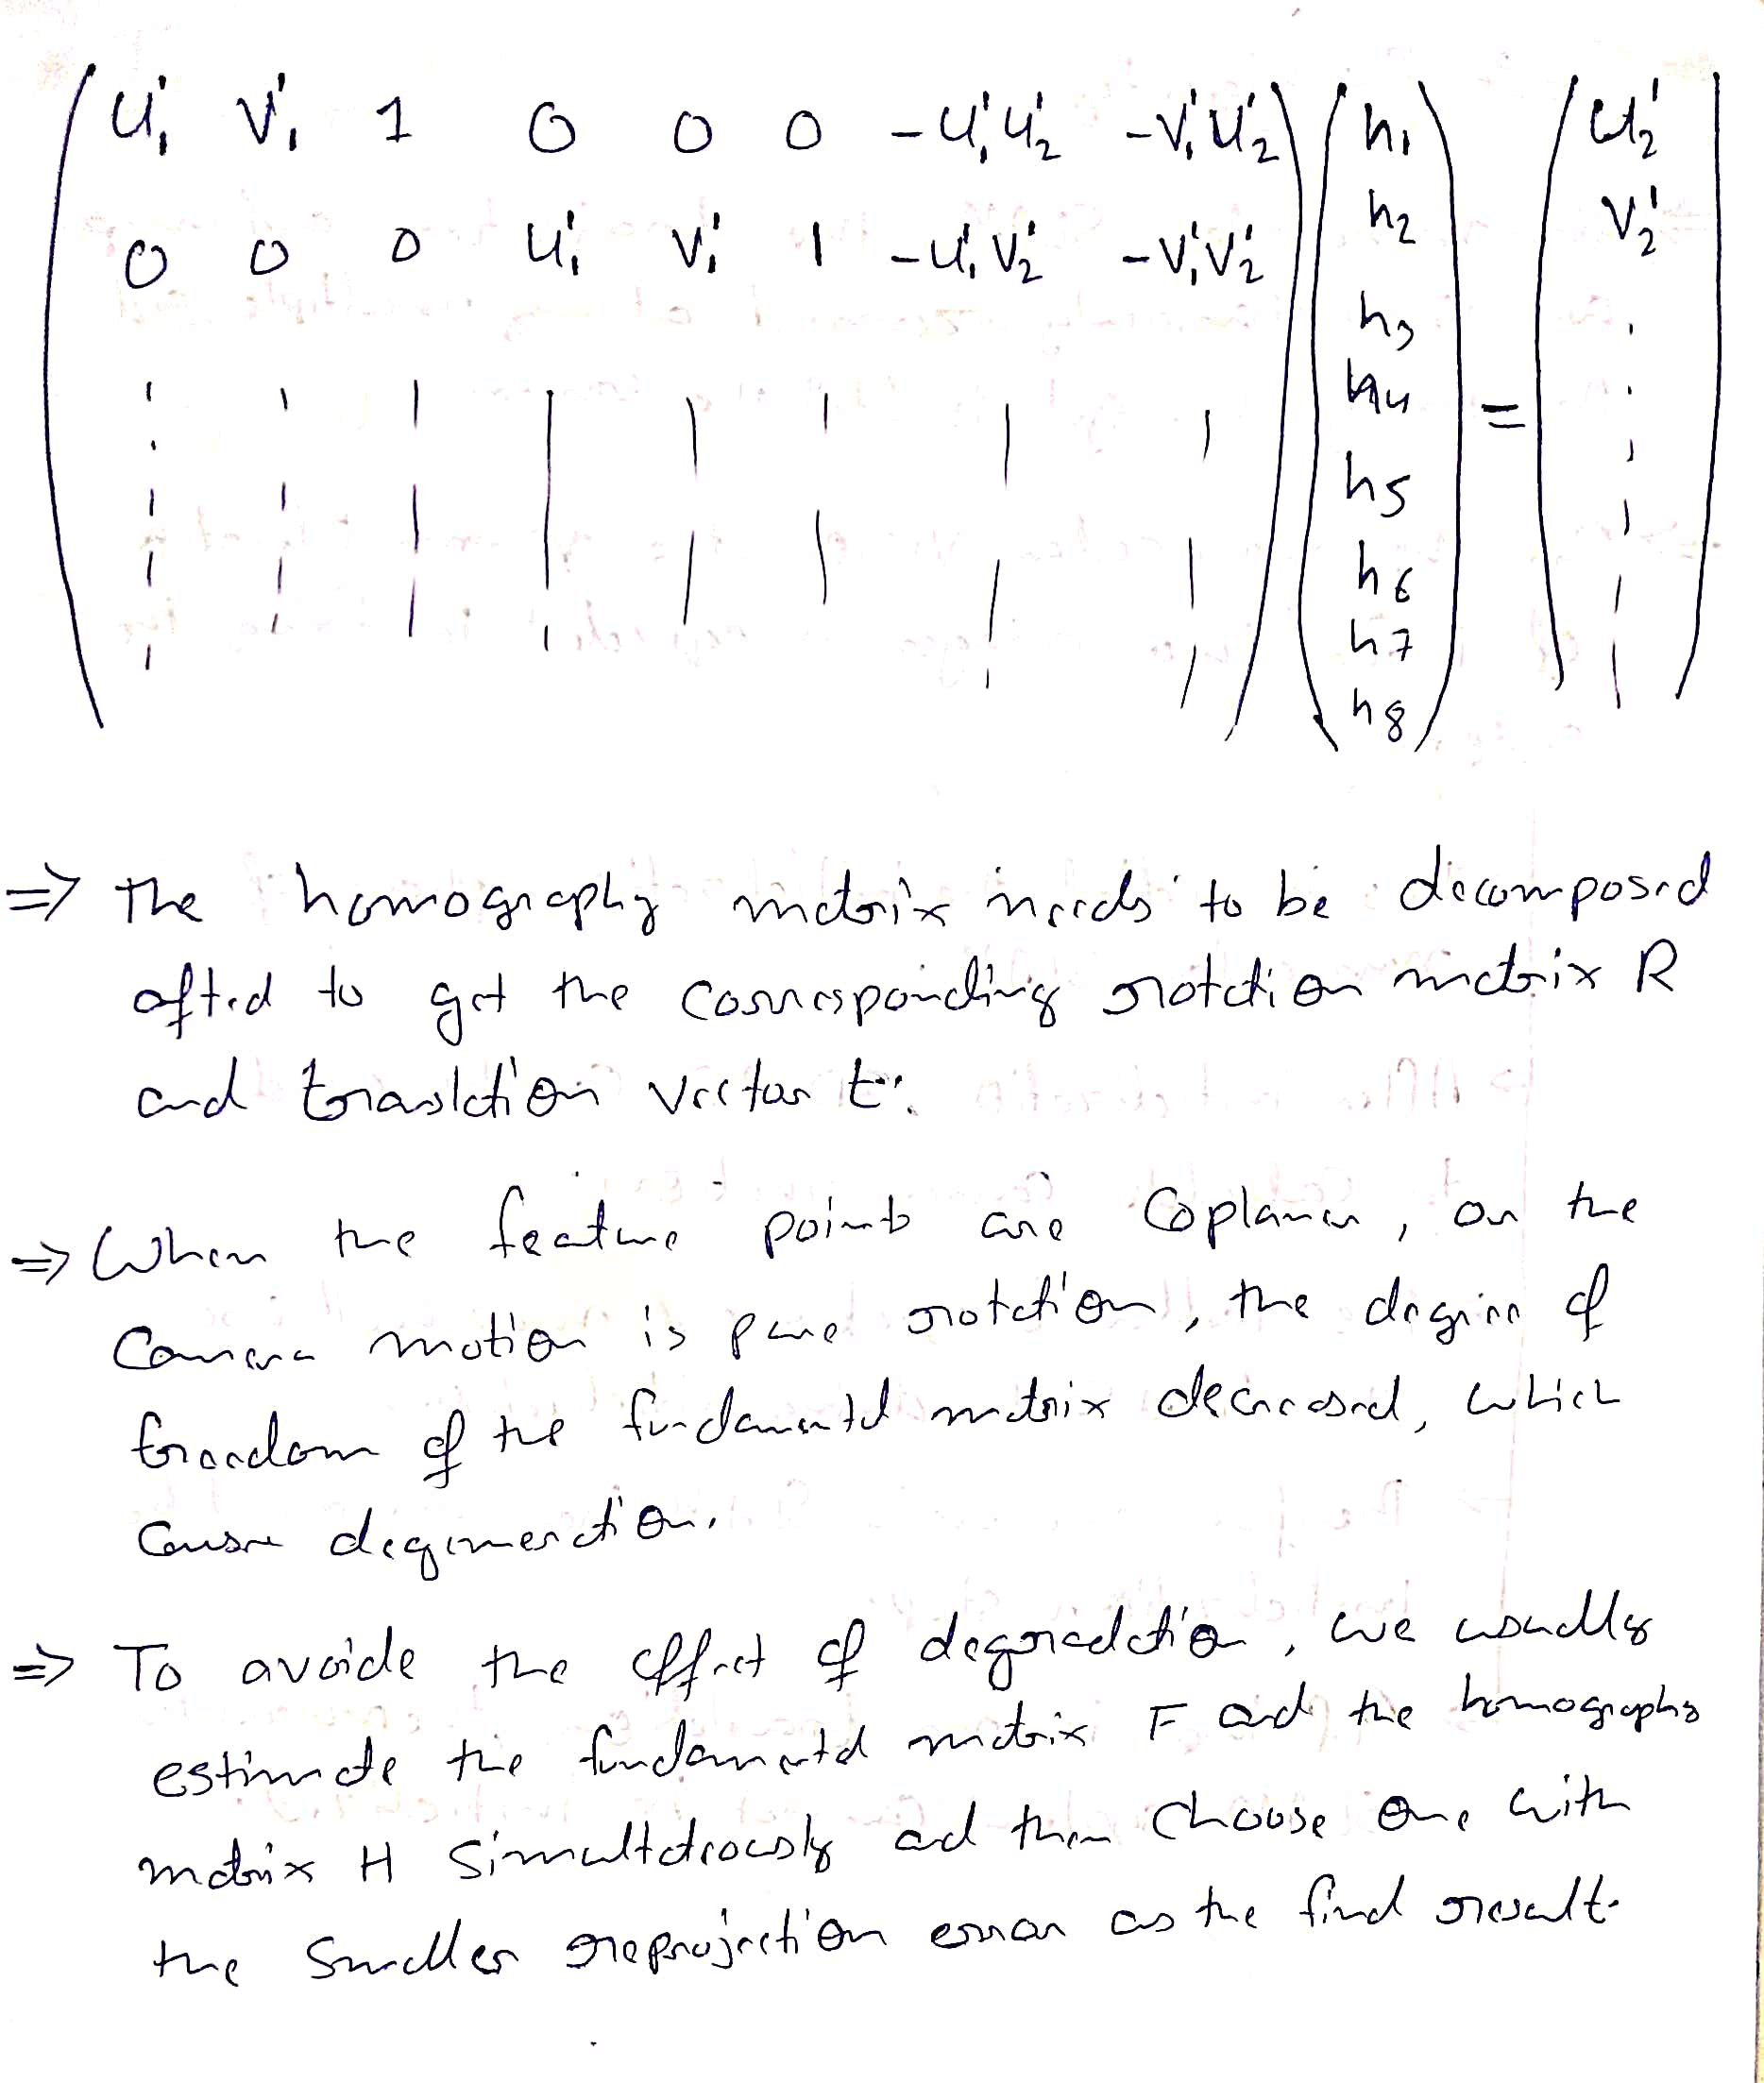 u₁¹ v₁¹ 1 0 0 0 -u₁¹u₂¹ -v₁¹u₂¹ h₁ u₂¹
0 0 0 u₁¹ v₁¹ 1 -u₁¹v₂¹ -v₁¹v₂¹ h₂ v₂¹
h₃
h₄
=
h₅
h₆
h₇
h₈
⇒ The homography matrix needs to be decomposed
afted to get the corresponding rotation matrix R
and translation vector t.
⇒ When the feature points are Coplanar, or the
Camera motion is pure rotation, the degree of
freedom of the fundamental matrix decreased, which
Cause degeneration.
⇒ To avoide the effect of degradation, we usually
estimate the fundamental matrix F and the homography
matrix H Simultateously and then Choose One with
the Smaller reprojection error as the final result.